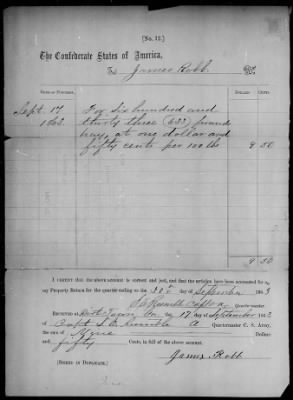 [No. 12.]
The Confederate States of America,
To James Robb Dr.
DATE OF PURCHASE.
DOLLARS CENTS
Sept. 17 For Six hundred and
1863. thirty three (633) pounds
hay, at one dollar and
fifty cents per 100 lbs 9 50
9 50
I CERTIFY that the above account is correct and just, and that the articles have been accounted for in
my Property Return for the quarter ending on the 30th day of September 1863
Quartermaster.
RECEIVED at this 17 day of September 1863
of Capt Quartermaster C. S. Army,
the sum of Nine Dollars
and fifty Cents, in full of the above account.
James Robb
[SIGNED IN DUPLICATE.]